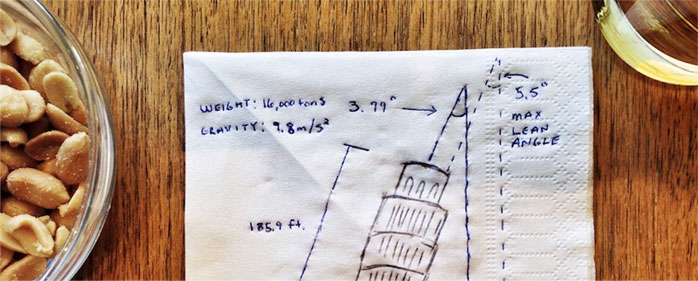 WEIGHT: 16,000 tons
GRAVITY: 9.8m/s²
3.99°
5.5°
MAX
LEAN
ANGLE
185.9 ft.